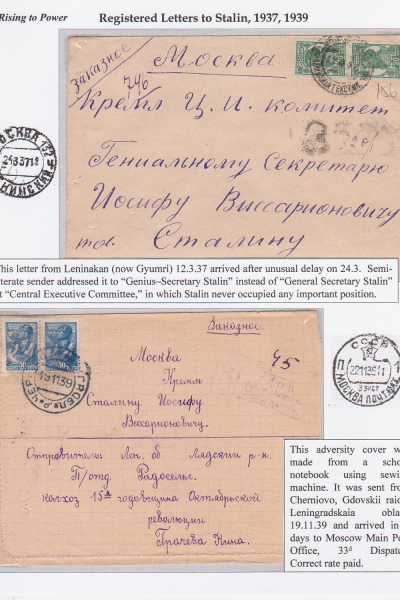 Rising to Power
Registered Letters to Stalin, 1937, 1939
заказное
Москва
746
156
Кремл Ц. И. комитет
Гениальному Секретарю
Иосифу Виссарионовичу
тов. Сталину
МОСКВА
24.3.37.18
This letter from Leninakan (now Gyumri) 12.3.37 arrived after unusual delay on 24.3. Semi-
terate sender addressed it to “Genius–Secretary Stalin” instead of “General Secretary Stalin”
t “Central Executive Committee,” in which Stalin never occupied any important position.
Заказное.
45
Москва
Кремл
Сталину Иосифу
Виссарионовичу.
Отправитель: Лен. об Лядский р-н.
П/отд. Радосельс.
колхоз 15ая годовщина Октябрьской
революции
Грачева Нина.
СССР
22.11.39.11
МОСКВА ПОЧТАМТ
This adversity cover w
made from a scho
notebook using sewi
machine. It was sent fro
Cherniovo, Gdovskii raio
Leningradskaia obla
19.11.39 and arrived in
days to Moscow Main Po
Office, 33d Dispatc
Correct rate paid.